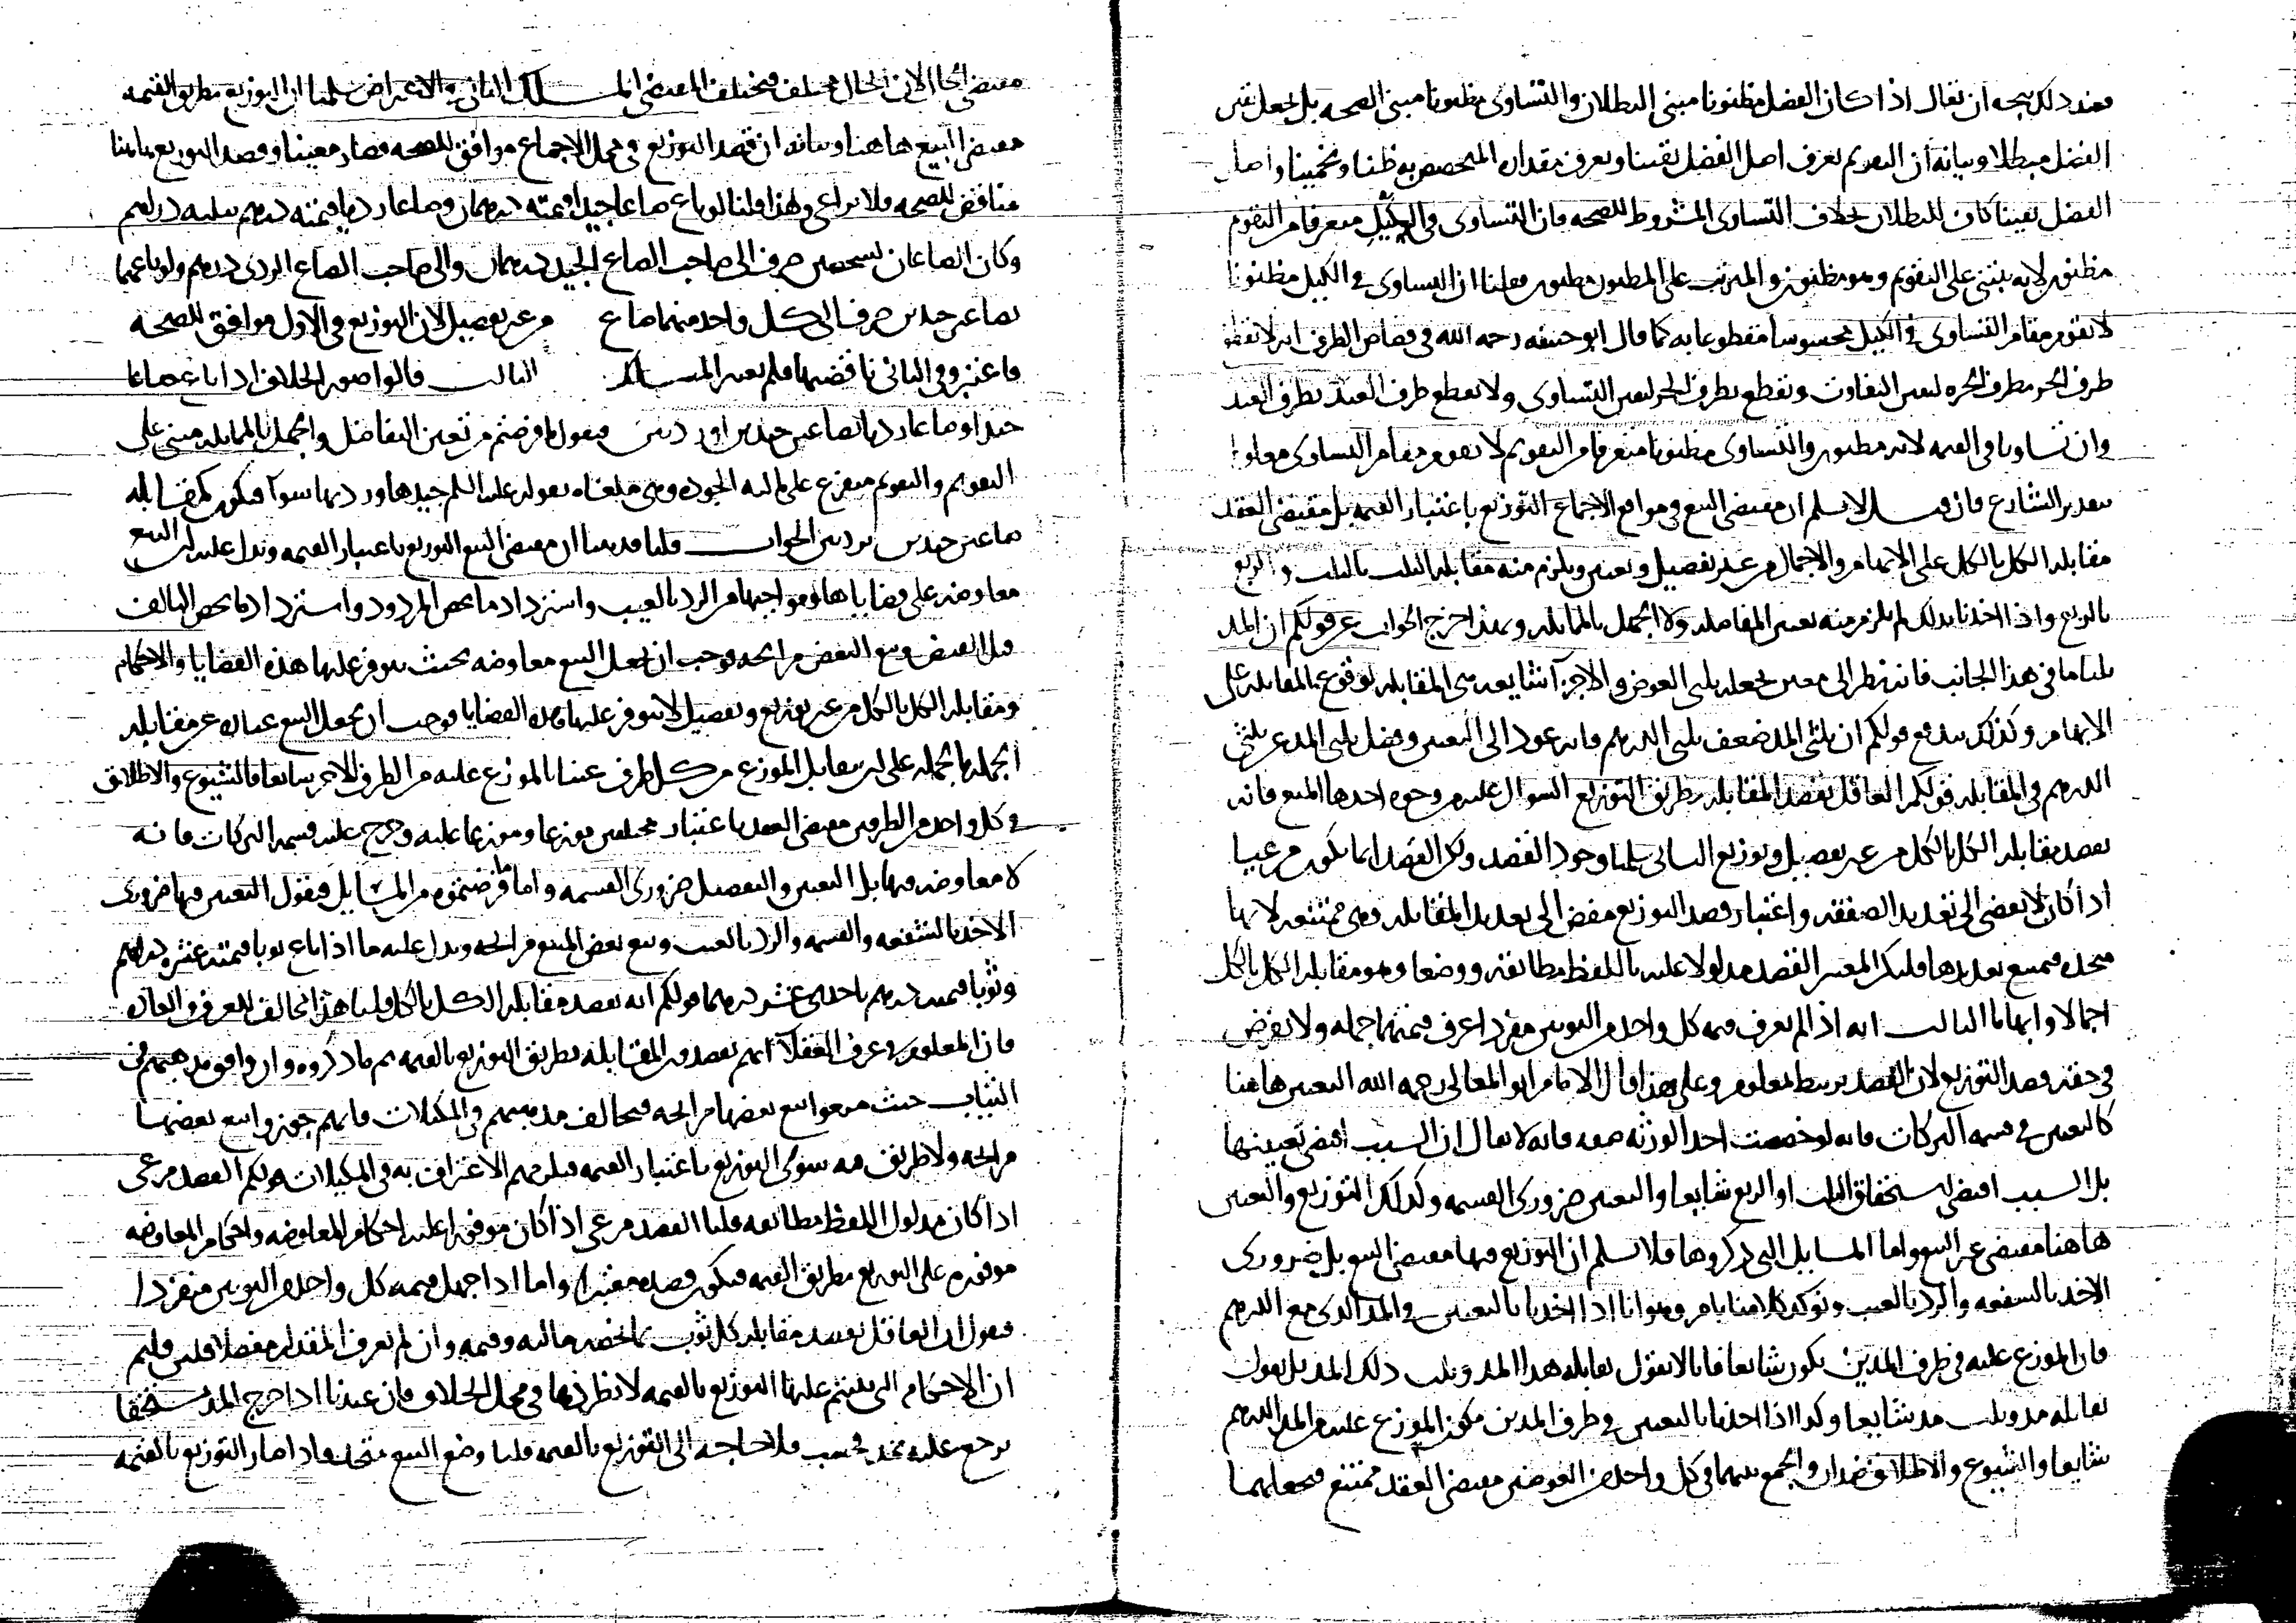 فعند ذلك يتجه ان يقال اذا كان الفضل مظنونا مبنى البطلان والتساوى مظنونا مبنى الصحه بل يجعل
الفضل مبطلا وبيانه ان التقويم يعرف اصل الفضل يقينا ويعرف مقداره المخصوص به ظنا وتخمينا واصل
الفضل يقينا كان للبطلان بخلاف التساوى المشروط للصحه فان التساوى فى الكيل متعرفا من التقويم
مظنون لانه يبتنى على التقويم وهو مظنون والمترتب على المظنون مظنون فقلنا ان التساوى فى الكيل مظنونا
لا يقوم مقام التساوى فى الكيل محسوسا مقطوعا به كما قال ابو حنيفه رحمه الله فى قصاص الطرف انه لا يقطع
طرف الحر بطرف الحره ليقين التفاوت ويقطع بطرف الحر ليقين التساوى ولا يقطع طرف العبد بطرف العبد
وان تساويا فى القيمه لانه مظنون والتساوى مظنونا متعرفا من التقويم لا يقوم مقام التساوى معلوما
بتقدير الشارع فان قيل لا نسلم ان مقتضى البيع فى مواقع الاجماع التوزيع باعتبار القيمه بل مقتضى العقد
مقابله الكل بالكل على الابهام والاجمال من غير تفصيل وتعيين ويلزم منه مقابله الثلث بالثلث والربع
بالربع واذا اخذنا بذلك لم يلزم منه تعيين المفاضله ولا الجهل بالمماثله وبهذا خرج الجواب عن قولكم ان المد
يلينا ما فى هذا الجانب فانه نظر الى معين بجعله ثلثى العوض والاجزآ شايعه فى المقابله لوقوع المقابله على
الابهام وكذلك يندفع قولكم ان ثلثى المد ضعف ثلثى الدرهم فانه عود الى التعيين وفصل ثلثى المد عن ثلثى
الدرهم فى المقابله قولكم العاقل يقصد المقابله بطريق التوزيع السوال عليه من وجوه احدها المنع فانه
يقصد مقابله الكل بالكل من غير تفصيل وتوزيع الثانى سلمنا وجود القصد ولكن القصد انما يكون مرعيا
اذا كان لا يفضى الى تعديد الصفقه واعتبار قصد التوزيع مفض الى تعديد المقابله وهى ممتنعه لانها
متحده فيمتنع تعديدها فليكن المعتبر القصد مدلولا عليه باللفظ مطابقه ووضعا وهو مقابله الكل بالكل
اجمالا وابهاما الثالث انه اذا لم يعرف قيمه كل واحد من الثوبين مفردا عرف قيمتهما جمله ولا يفرض
فى حقه قصد التوزيع لان القصد يرتبط بمعلوم وعلى هذا قال الامام ابو المعالى رحمه الله التعيين هاهنا
كالتعيين فى قسمه التركات فانه لو خصصت احد الورثه ببقعه فانه لا يقال ان السبب اقتضى تعيينها
بل السبب اقتضى استحقاق الثلث او الربع شايعا والتعيين ضرورى القسمه وكذلك التوزيع والتعيين
هاهنا مقتضى غير البيع واما المسايل التى ذكروها فلا نسلم ان التوزيع فيها مقتضى البيع بل ضرورى
الاخذ بالشفعه والرد بالعيب ونوكد كلامنا بامر وهو انا اذا اخذنا بالتعيين فى المد الذى مع الدرهم
فان الموزع عليه فى طرف المدين يكون شايعا فانا لا نقول يقابله هذا المد وثلث ذلك المد بل نقول
يقابله مد وثلث مد شايعا وكذا اذا اخذنا بالتعيين فى طرف المدين يكون الموزع عليه من المد والدرهم
شايعا والشيوع والاطلاق ضدان والجمع بينهما فى كل واحد من العوضين مقتضى العقد ممتنع فيجعلهما
مقتضى الحال لان الحال مختلف فيختلف المقتضى المسلك الثانى فى الاعتراض سلمنا ان التوزيع بطريق القيمه
مقتضى البيع هاهنا وبيانه ان قصد التوزيع فى محل الاجماع موافق للصحه فصار معينا وقصد التوزيع هاهنا
مناقض للصحه فلا يراعى ولهذا قلنا لو باع صاعا جيدا قيمته درهمان وصاعا رديا قيمته درهم بثلثه دراهم
وكان الصاعان لشخصين صرف الى صاحب الصاع الجيد درهمان والى صاحب الصاع الردى درهم ولو باعهما
بصاعين جيدين صرف الى كل واحد منهما صاع من غير تفصيل لان التوزيع فى الاول موافق للصحه
فاعتبر وفى الثانى ناقضها فلم يعتبر المسلك الثالث قالوا صوره الخلاف اذا باع صاعا
جيدا وصاعا رديا بصاعين جيدين او رديين فيقول ما فرضتم من تعيين التفاضل والجهل بالمماثله مبنى على
التقويم والتقويم متفرع على ماليه الجوده وهى ملغاه بقوله عليه السلم جيدها ورديها سوآ فيكون كمقابله
صاعين جيدين برديين الجواب قلنا قد بينا ان مقتضى البيع التوزيع باعتبار القيمه ويدل عليه ان البيع
معاوضه على قضايا هى مواجبها من الرد بالعيب واسترداد ما يخص المردود واسترداد ما يخص التالف
قبل القبض وبيع البعض مرابحه فوجب ان يجعل البيع معاوضه بحيث يتوفر عليها هذه القضايا والاحكام
ومقابله الكل بالكل من غير توزيع وتفصيل لا يتوفر عليها هذه القضايا فوجب ان يجعل البيع عباره عن مقابله
الجمله بالجمله على ان يقابل الموزع من كل طرف عينا بالموزع عليه من الطرف الاخر شايعا فالشيوع والاطلاق
فى كل واحد من الطرفين مقتضى العقد باعتبار مختلفين موزعا وموزعا عليه وخرج عليه قسمه التركات فانه
لا معاوضه فيها بل التعيين والتفصيل ضرورى القسمه واما ما فرضتموه من المسايل فيقول التعيين فيها ضرورى
الاخذ بالشفعه والقسمه والرد بالعيب وبيع بعض المبيع مرابحه ويدل عليه ما اذا باع ثوبا قيمته عشره دراهم
وثوبا قيمته درهم باحدى عشر درهما قولكم انه يقصد مقابله الكل بالكل قلنا هذا مخالف للعرف والعاده
فان المعلوم فى عرف العقلآ انهم يقصدون المقابله بطريق التوزيع بالقيمه ثم ما ذكروه وان وافق مذهبهم فى
الثياب حيث منعوا بيع بعضها مرابحه فيخالف مذهبهم فى المكيلات فانهم جوزوا بيع بعضها
مرابحه ولا طريق فيه سوى التوزيع باعتبار القيمه فيلزمهم الاعتراف به فى المكيلات قولكم القصد مرعى
اذا كان مدلول اللفظ مطابقه قلنا القصد مرعى اذا كان موفورا عليه احكام المعاوضه واحكام المعاوضه
موفوره على التوزيع بطريق القيمه فيكون قصده معتبرا واما اذا جهل قيمه كل واحد من الثوبين منفردا
فنقول ان العاقل يقصد مقابله كل ثوب بما يخصه ماليه وقيمه وان لم يعرف المقدار مفصلا فلين قلتم
ان الاحكام التى بنيتم عليها التوزيع بالقيمه لا نظر لها فى محل الخلاف فان عندنا اذا خرج المد مستحقا
يرجع عليه بمد فحسب فلا حاجه الى التوزيع بالقيمه قلنا وضع البيع متحد واذا صار التوزيع بالقيمه